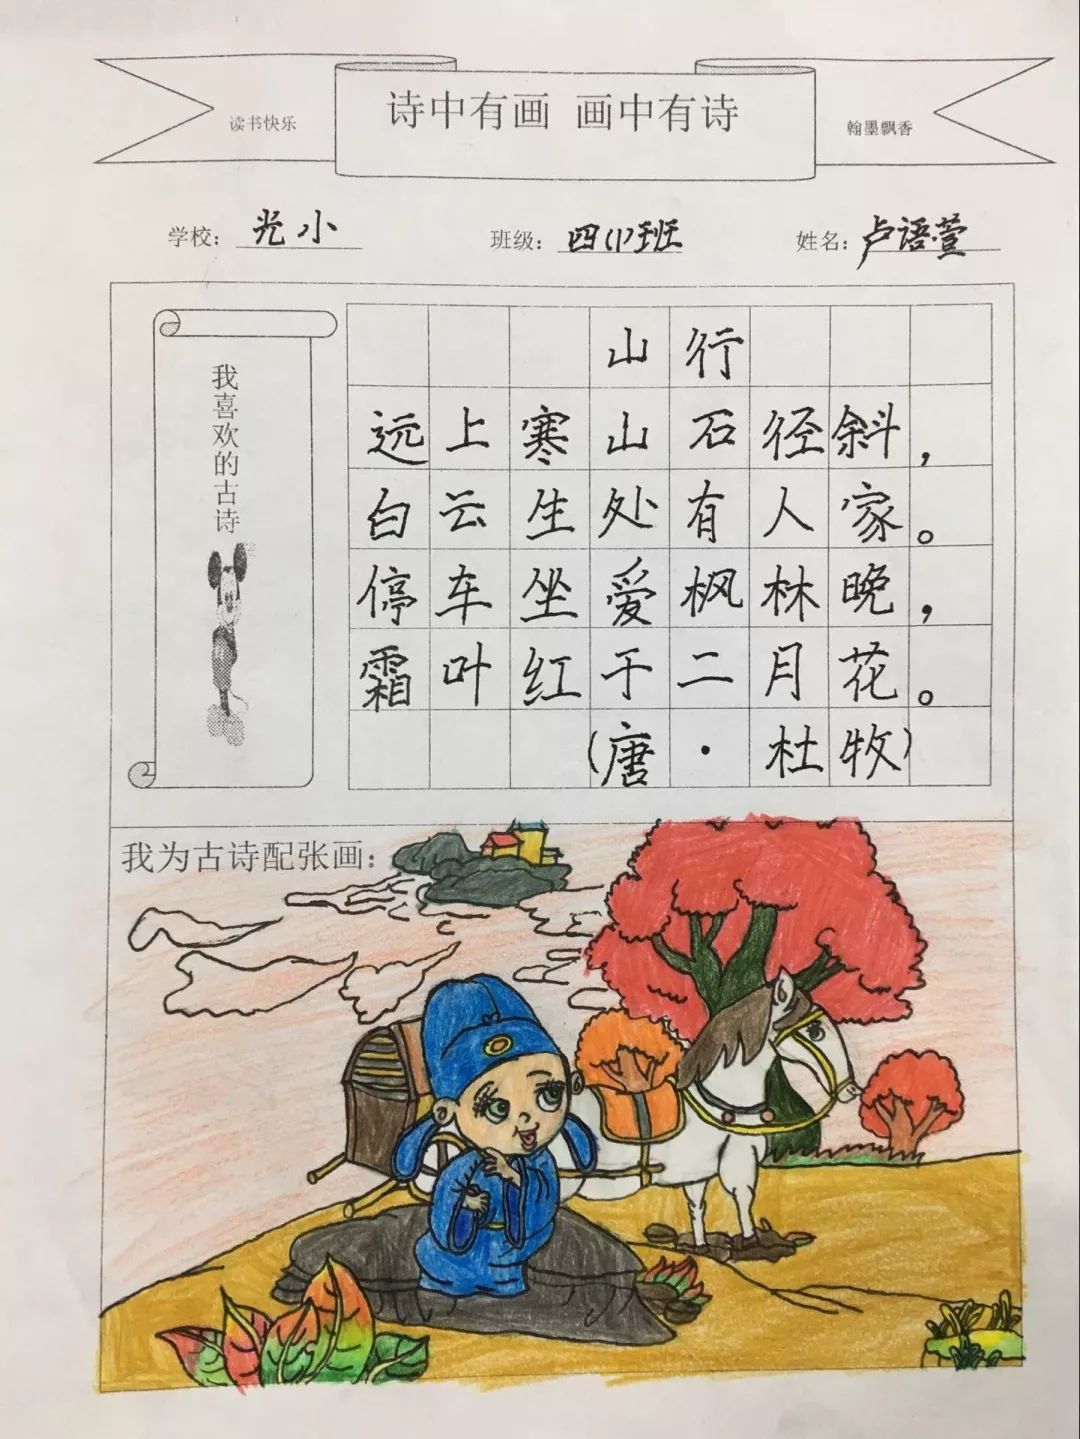 诗中有画 画中有诗
读书快乐
翰墨飘香
学校：光小 班级：四(1)班 姓名：卢语萱
我喜欢的古诗
山行
远上寒山石径斜，
白云生处有人家。
停车坐爱枫林晚，
霜叶红于二月花。
（唐·杜牧）
我为古诗配张画：